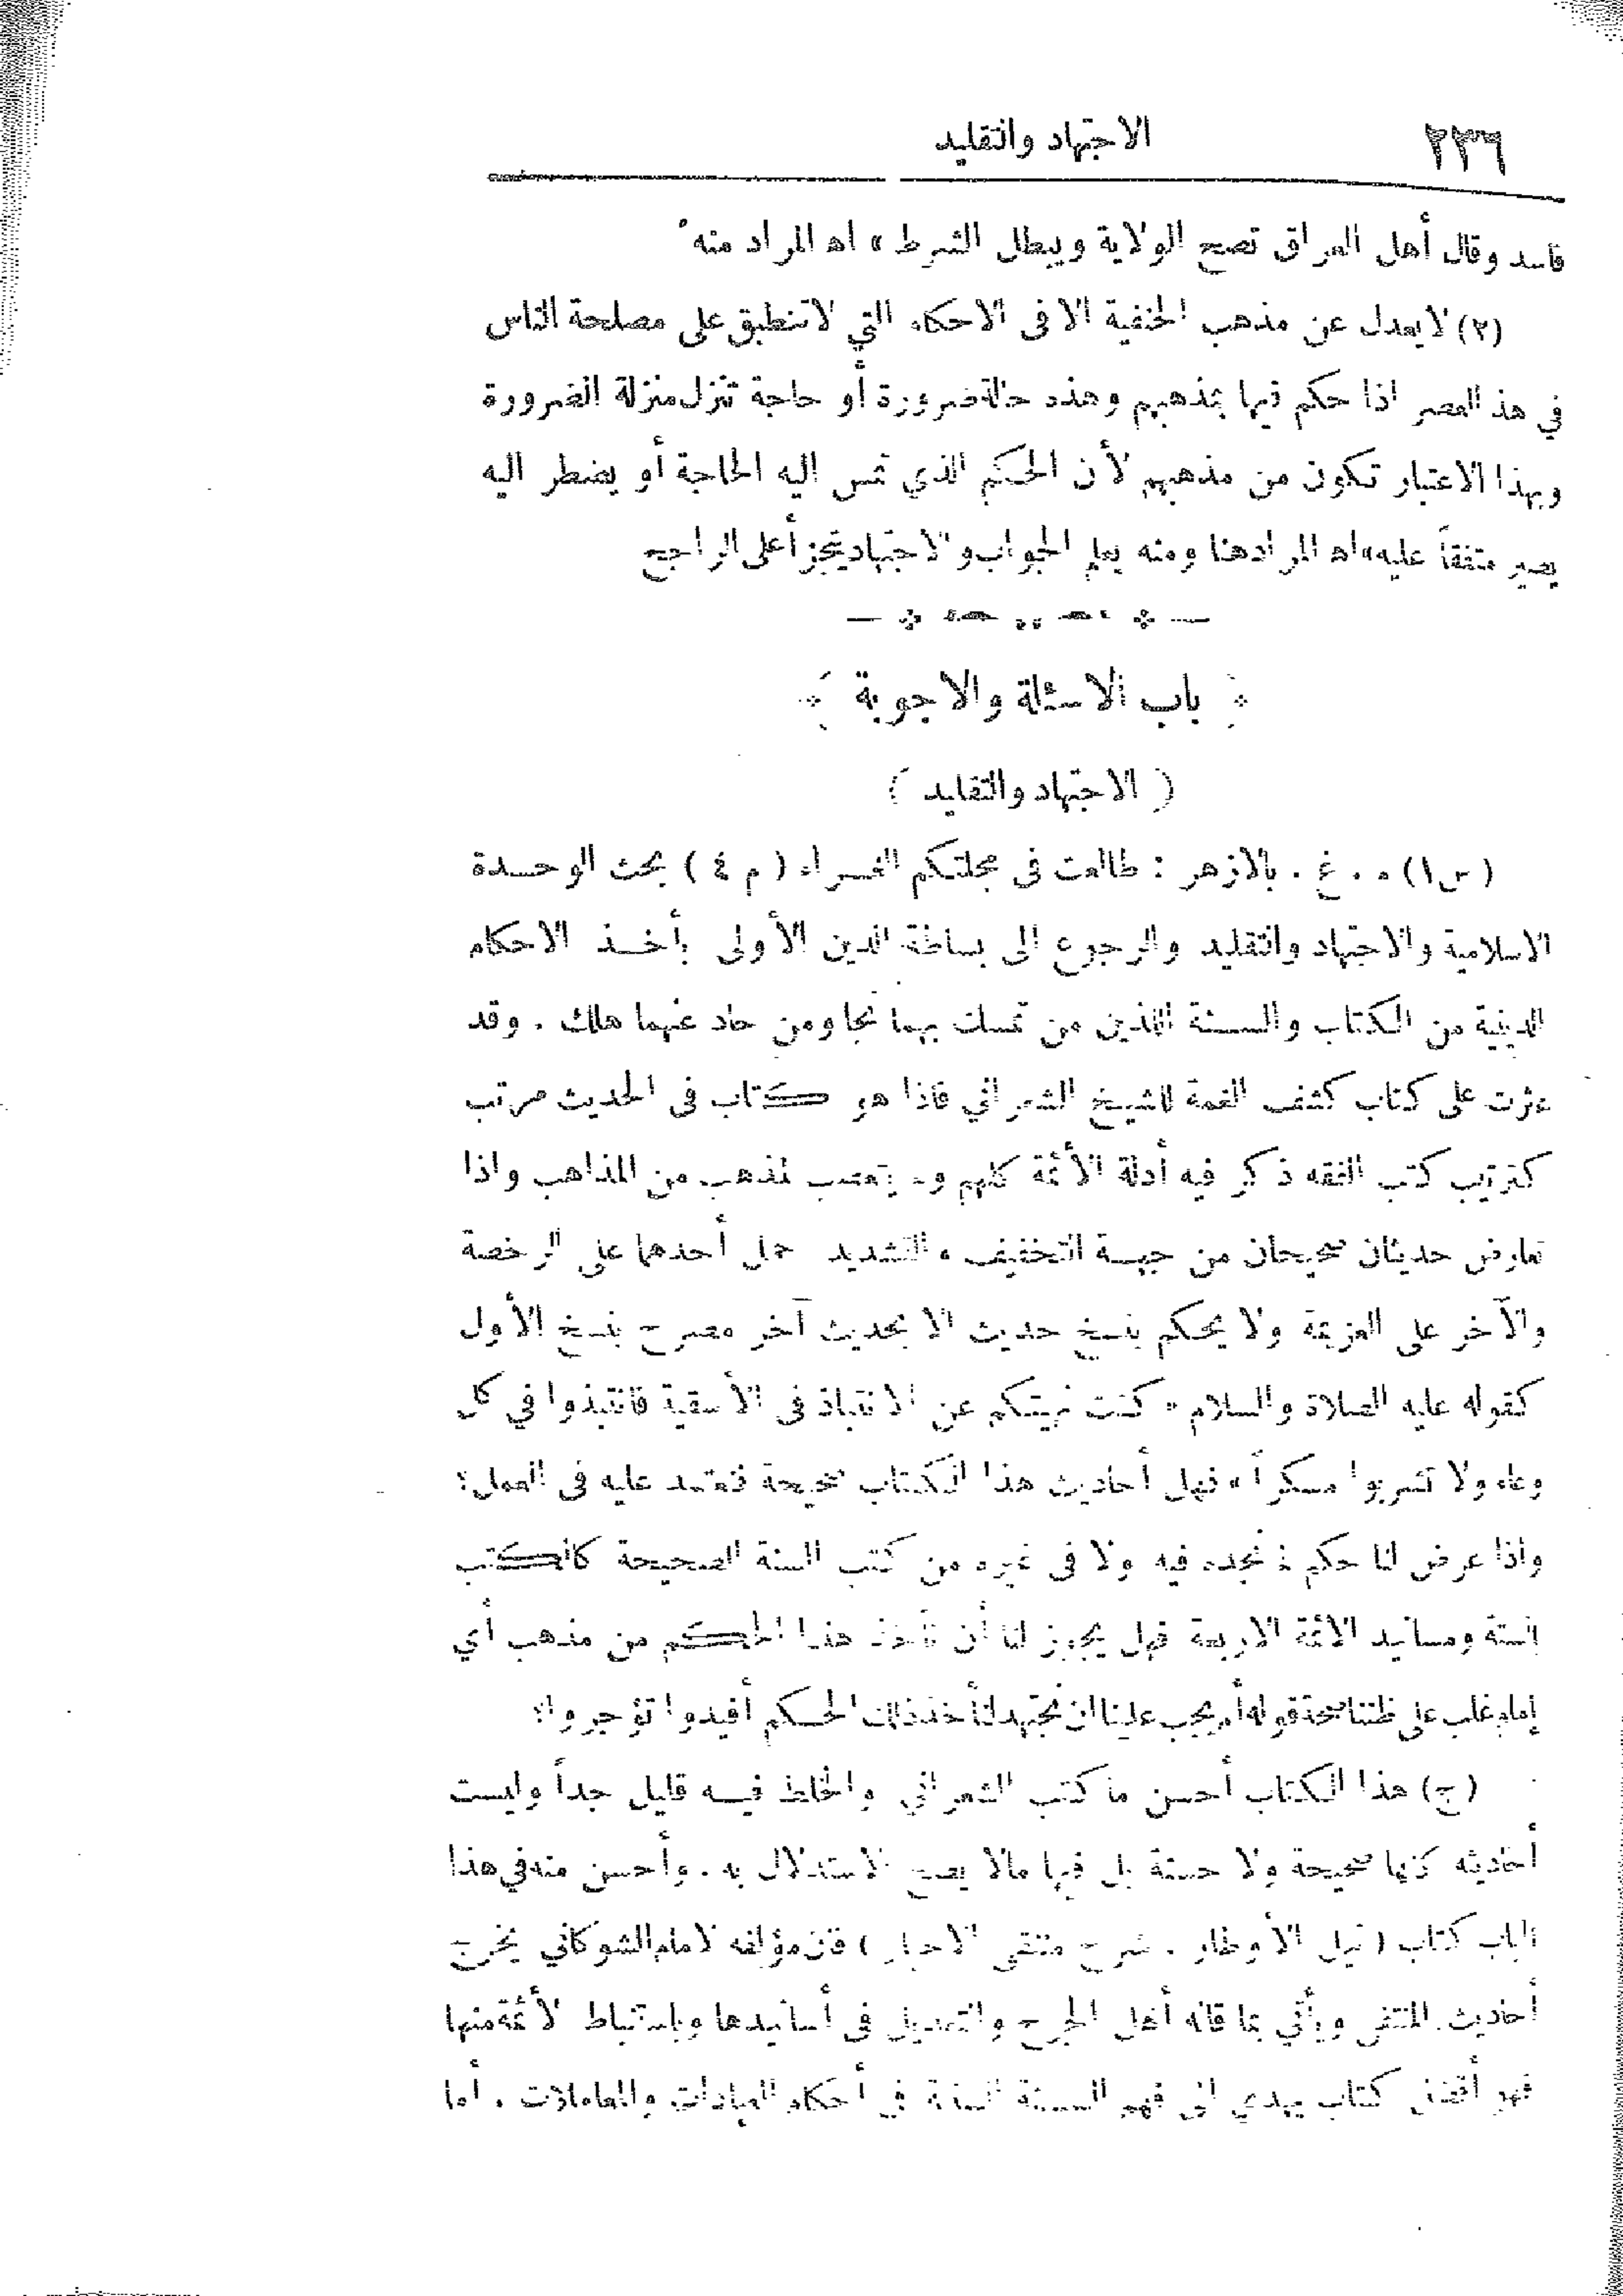 ٢٣٦
الاجتهاد والتقليد
فاسد وقال أهل العراق تصح الولاية ويبطل الشرط » اه المراد منه
(٢) لا يعدل عن مذهب الحنفية الا فى الاحكام التي لا تنطبق على مصلحة الناس
في هذ العصر اذا حكم فيها بمذهبهم وهذه حالة ضرورة أو حاجة تنزل منزلة الضرورة
وبهذا الاعتبار تكون من مذهبهم لأن الحكم الذي تمس اليه الحاجة أو يضطر اليه
يصير متفقاً عليه» اه المراد هنا ومنه يعلم الجواب والاجتهاد يتجزأ على الراجح
باب الاسئلة والاجوبة
( الاجتهاد والتقليد )
(س١) م . غ . بالازهر : طالعت فى مجلتكم الغراء ( م ٤ ) بحث الوحدة
الاسلامية والاجتهاد والتقليد والرجوع الى بساطة الدين الأولى بأخذ الاحكام
الدينية من الكتاب والسنة اللذين من تمسك بهما نجا ومن حاد عنهما هلك . وقد
عثرت على كتاب كشف الغمة للشيخ الشعراني فاذا هو كتاب فى الحديث مرتب
كترتيب كتب الفقه ذكر فيه أدلة الأئمة كلهم ولم يتعصب لمذهب من المذاهب واذا
تعارض حديثان صحيحان من جهة التخفيف والتشديد حمل أحدهما على الرخصة
والآخر على العزيمة ولا يحكم بنسخ حديث الا بحديث آخر مصرح بنسخ الأول
كقوله عليه الصلاة والسلام « كنت نهيتكم عن الانتباذ فى الأسقية فانتبذوا في كل
وعاء ولا تشربوا مسكراً » فهل أحاديث هذا الكتاب صحيحة فنعتمد عليه فى العمل؟
واذا عرض لنا حكم لم نجده فيه ولا فى غيره من كتب السنة الصحيحة كالكتب
الستة ومسانيد الائمة الاربعة فهل يجوز لنا أن نأخذ هذا الحكم من مذهب أي
إمام غلب على ظننا صحة قوله أم يجب علينا ان نجتهد لنأخذ ذلك الحكم أفيدوا تؤجروا؟
(ج) هذا الكتاب أحسن ما كتب الشعراني والخلط فيه قليل جداً وليست
أحاديثه كلها صحيحة ولا حسنة بل فيها مالا يصح الاستدلال به . وأحسن منه في هذا
الباب كتاب ( نيل الأوطار . شرح منتقى الاخبار ) فان مؤلفه الامام الشوكاني يخرج
أحاديث المنتقى ويأتي بما قاله أهل الجرح والتعديل فى أسانيدها وباستنباط الأئمة منها
فهو أفضل كتاب يهدي الى فهم السنة السنية في أحكام العبادات والمعاملات . أما